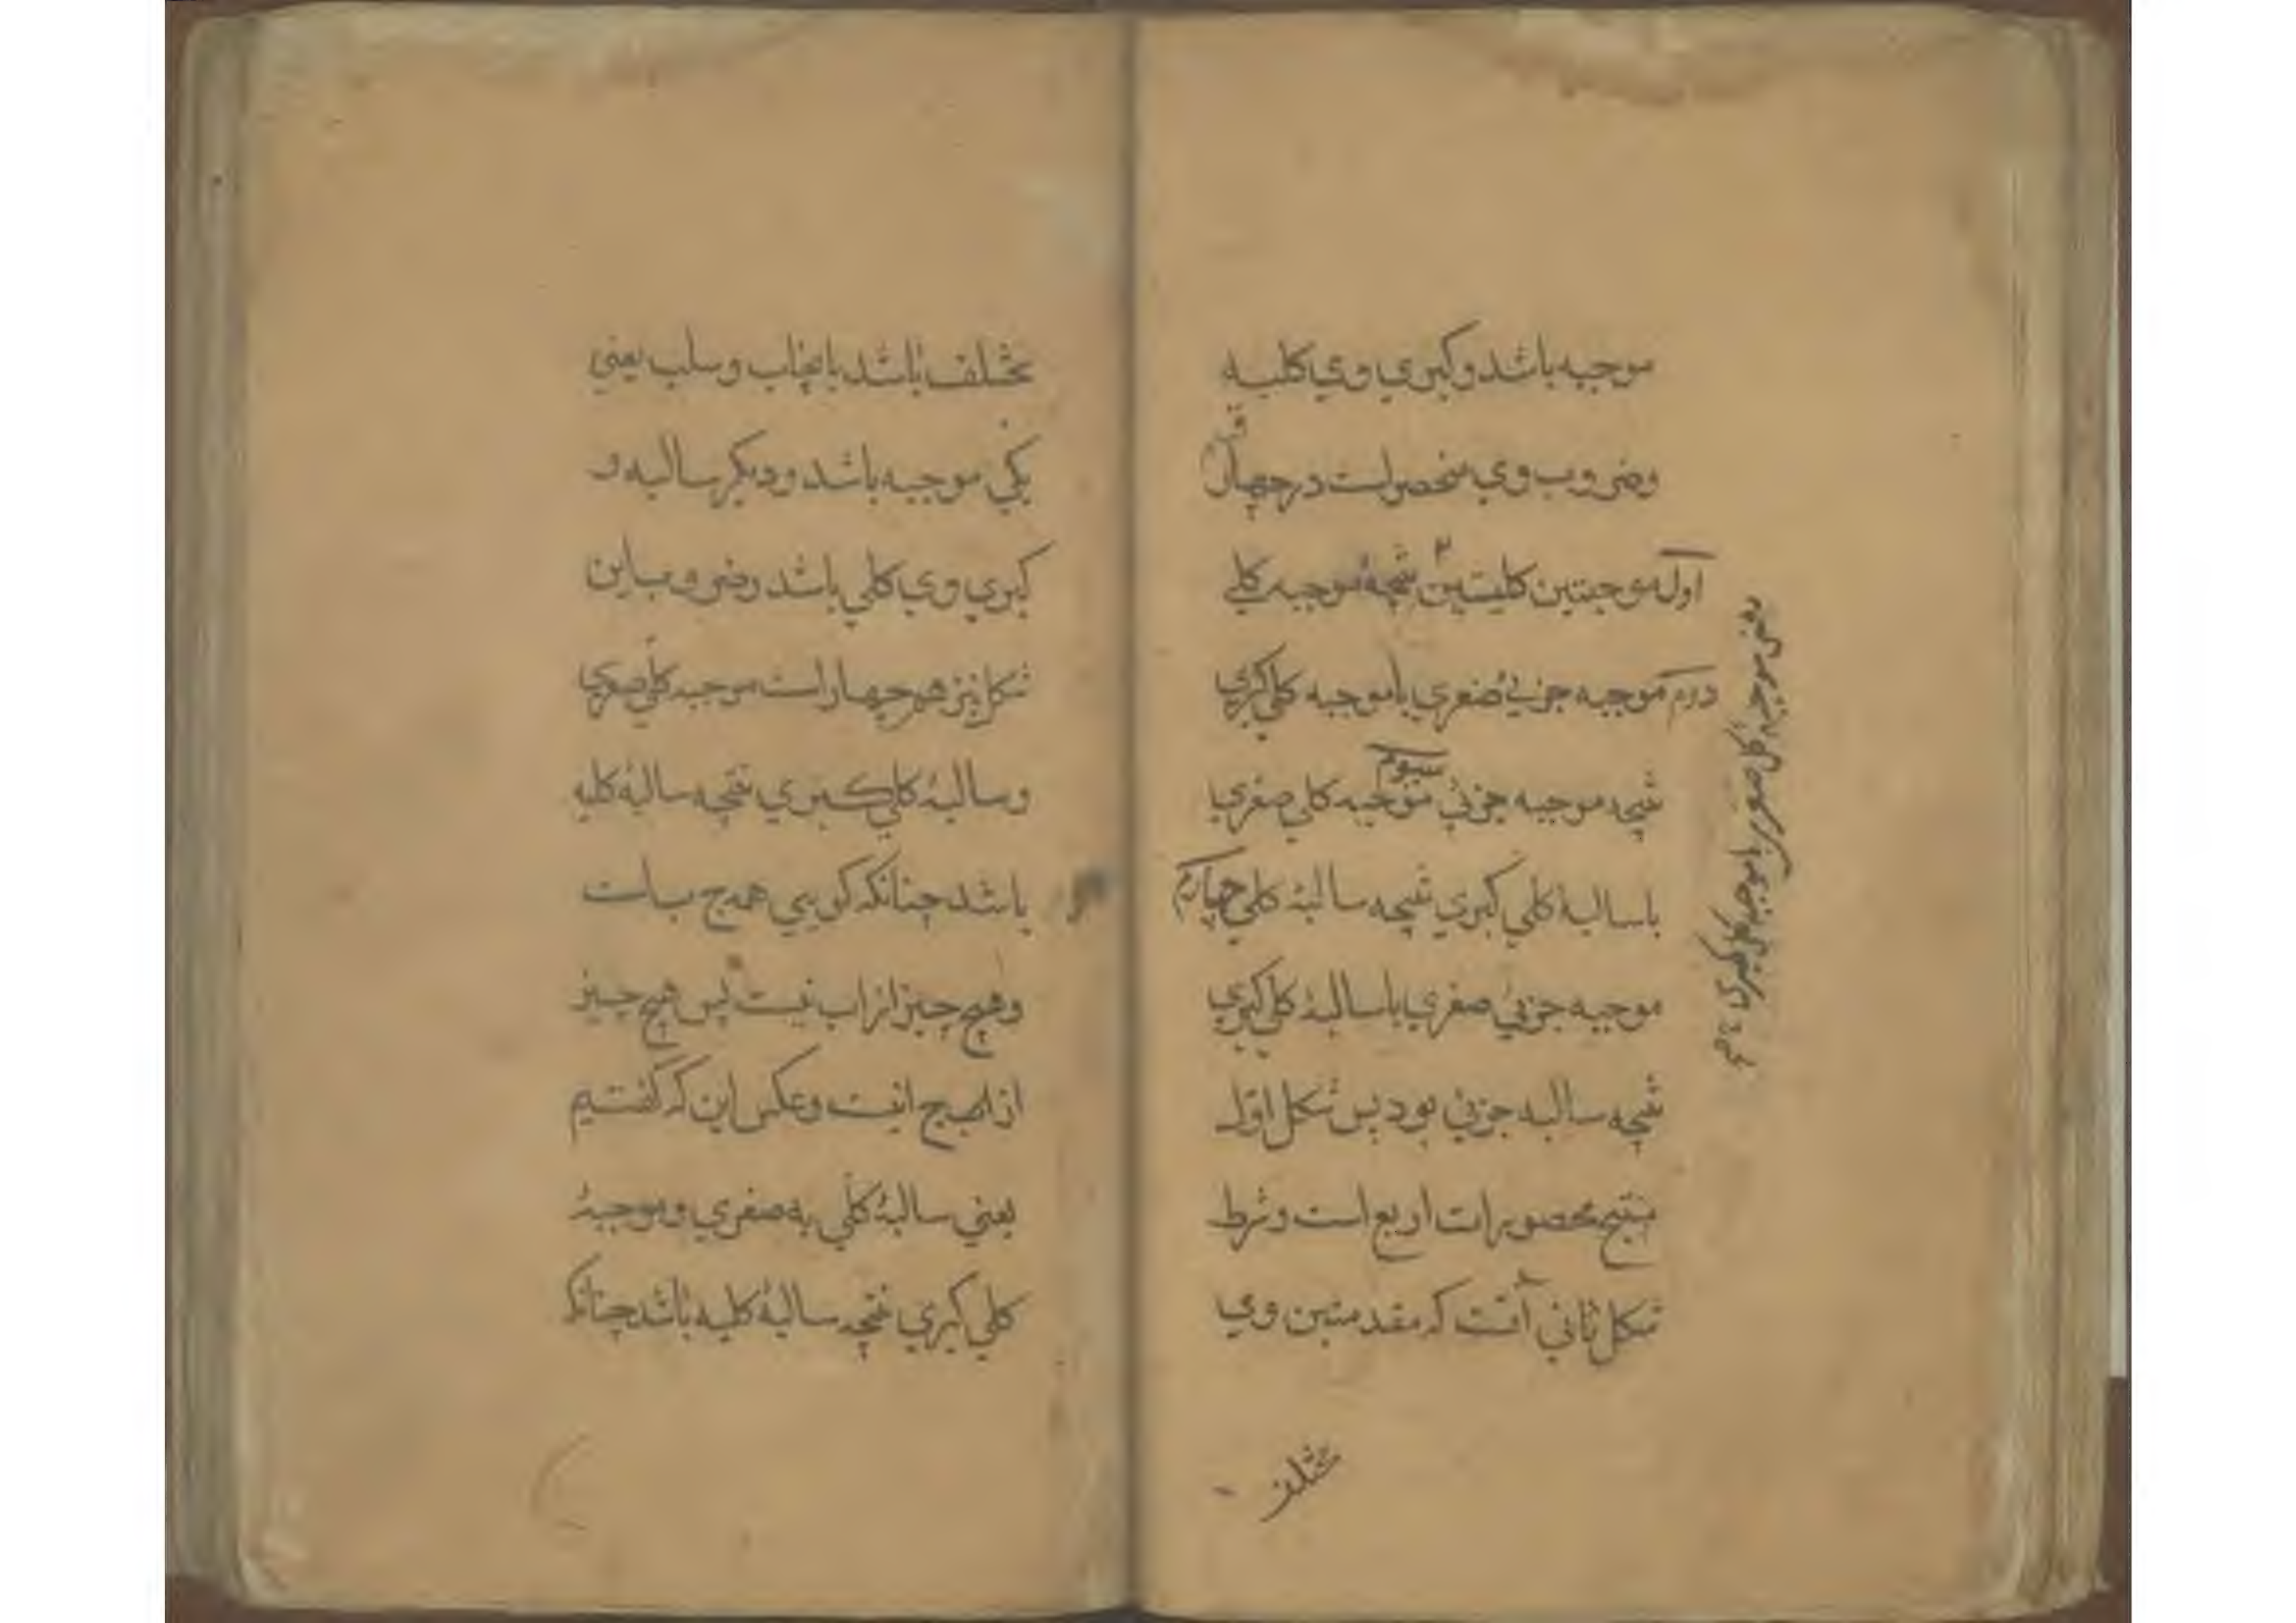 موجبه باشد و کبری وی کلیه
وضروب وی منحصرلست در چهار
ق
اول موجبتین کلیتین نتیجهٔ موجبه کلی
دوم موجبه جزئی صغری با موجبه کلی کبری
سیوم
نتیجه موجبه جزئی موجبه کلی صغری
با سالبهٔ کلی کبری نتیجه سالبهٔ کلی چهارم
موجبه جزئی صغری با سالبهٔ کلی کبری
نتیجه سالبه جزئی بود پس شکل اول
منتج محصورات اربع است و شرط
شکل ثانی آنست که مقدمتین وی
مختلف
یعنی موجبهٔ کلی صغری با موجبه کلی کبری
مختلف باشد بایجاب و سلب یعنی
یکی موجبه باشد و دیکر سالبه و
کبری وی کلی باشد وضروب این
شکل نیز هم چهار است موجبه کلی صغری
و سالبهٔ کلی کبری نتیجه سالبهٔ کلیه
باشد چنانکه کویی همه ج ب است
و هیچ چیز از اب نیست پس هیچ چیز
از ج انیست و عکس این که گفتیم
یعنی سالبهٔ کلی به صغری و موجبهٔ
کلی کبری نتیجه سالبهٔ کلیه باشد چنانکه